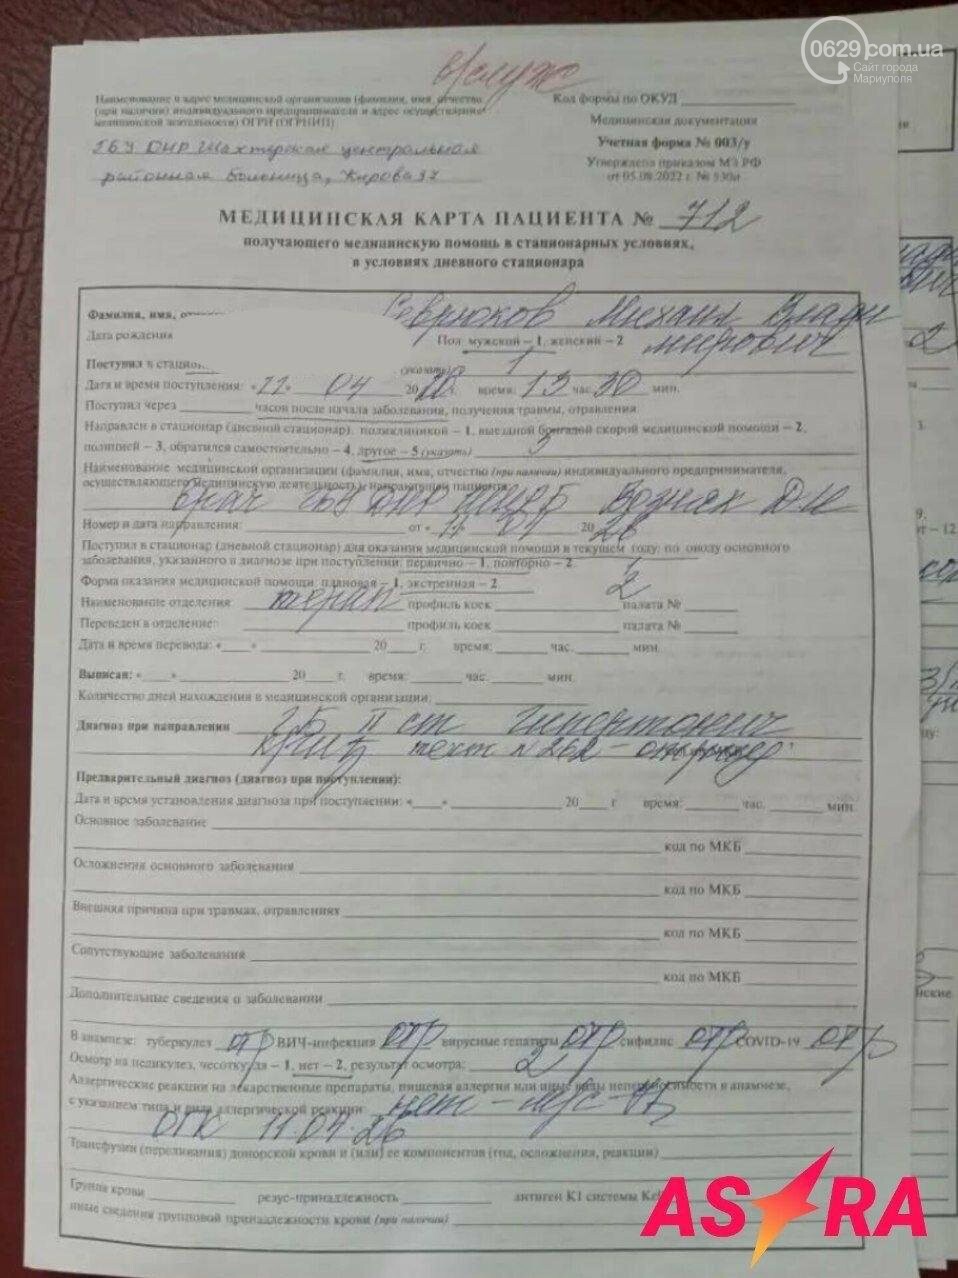 0629.com.ua
Сайт города
Мариуполя
Наименование и адрес медицинской организации (фамилия, имя, отчество
(при наличии) индивидуального предпринимателя и адрес осуществления
медицинской деятельности) ОГРН (ОГРНИП)
Код формы по ОКУД
Медицинская документация
Учетная форма № 003/у
Утверждена приказом МЗ РФ
от 05.08.2022 г. № 530н
ГБУ ДНР Шахтерская центральная
районная больница, Кирова 37
МЕДИЦИНСКАЯ КАРТА ПАЦИЕНТА № 712
получающего медицинскую помощь в стационарных условиях,
в условиях дневного стационара
Фамилия, имя, Севрюков Михаил Влади
Дата рождения Пол мужской – 1, женский – 2 мирович
Поступил в (указать) 1
Дата и время поступления: «11» 04 20 время: 13 час 30 мин.
Поступил через часов после начала заболевания, получения травмы, отравления
Направлен в стационар (дневной стационар): поликлиникой – 1, выездной бригадой скорой медицинской помощи – 2,
полицией – 3, обратился самостоятельно – 4, другое – 5 (указать)
Наименование медицинской организации (фамилия, имя, отчество (при наличии) индивидуального предпринимателя,
осуществляющего медицинскую деятельность), направившей пациента:
врач ГБУ ДНР ШЦРБ
Номер и дата направления: от « 11 » 20 26
Поступил в стационар (дневной стационар) для оказания медицинской помощи в текущем году: по поводу основного
заболевания, указанного в диагнозе при поступлении: первично – 1, повторно – 2. 1
Форма оказания медицинской помощи: плановая – 1, экстренная – 2. 2
Наименование отделения: терап профиль коек палата №
Переведен в отделение: профиль коек палата №
Дата и время перевода: « » 20 г. время: час. мин.
Выписан: « » 20 г. время: час. мин.
Количество дней нахождения в медицинской организации:
Диагноз при направлении ГБ II ст Гипертонич
криз
Предварительный диагноз (диагноз при поступлении):
Дата и время установления диагноза при поступлении: « » 20 г время: час. мин.
Основное заболевание
код по МКБ
Осложнения основного заболевания
код по МКБ
Внешняя причина при травмах, отравлениях
код по МКБ
Сопутствующие заболевания
код по МКБ
Дополнительные сведения о заболевании
В анамнезе: туберкулез отр ВИЧ-инфекция отр вирусные гепатиты отр сифилис отр COVID-19 отр
Осмотр на педикулез, чесотку: да – 1, нет – 2, результат осмотра: 2
Аллергические реакции на лекарственные препараты, пищевая аллергия или иные виды непереносимости в анамнезе,
с указанием типа и вида аллергической реакции: нет
ОГК 11.04.26
Трансфузии (переливания) донорской крови и (или) ее компонентов (год, осложнения, реакции)
Группа крови резус-принадлежность антиген K1 системы
иные сведения групповой принадлежности крови (при наличии)
ASTRA